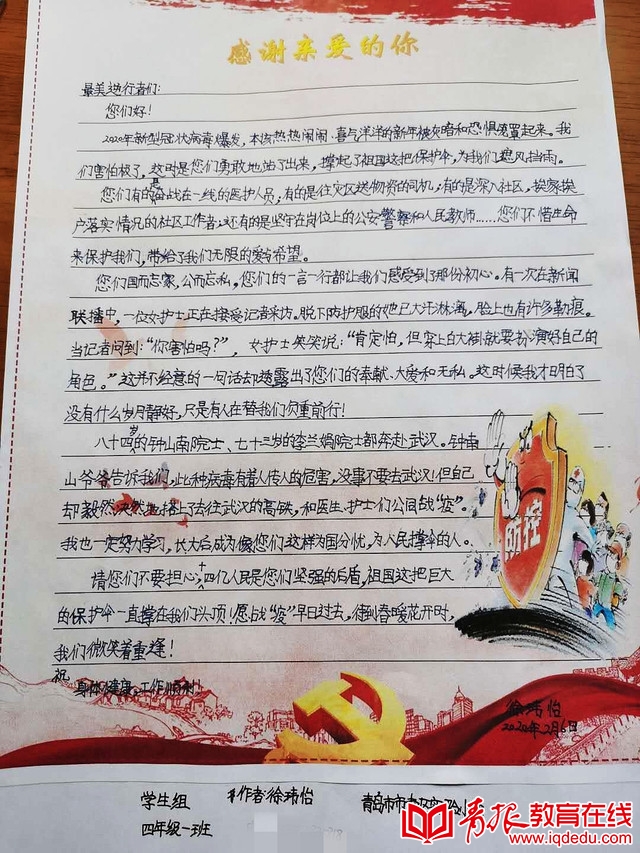 感谢亲爱的你
最美逆行者们：
您们好！
2020年新型冠状病毒爆发，本该热热闹闹、喜气洋洋的新年被灾暗和恐惧笼罩起来。我
们害怕极了，这时是您们勇敢地站了出来，撑起了祖国这把保护伞，为我们遮风挡雨。
您们有的是奋战在一线的医护人员，有的是往灾区送物资的司机，有的是深入社区，挨家挨
户落实情况的社区工作者，还有的是坚守在岗位上的公安警察和人民教师……您们不惜生命
来保护我们，带给了我们无限的爱与希望。
您们国而忘家，公而忘私，您们的一言一行都让我们感受到了那份初心。有一次在新闻
联播中，一位女护士正在接受记者采访。脱下防护服的她已大汗淋漓，脸上也有许多勒痕。
当记者问到：“你害怕吗？”，女护士笑笑说：“肯定怕，但穿上白大褂就要扮演好自己的
角色。”这并不经意的一句话却透露出了您们的奉献、大爱和无私。这时候我才明白了
没有什么岁月静好，只是有人在替我们负重前行！
八十四岁的钟山南院士、七十三岁的李兰娟院士都奔赴武汉。钟南
山爷爷告诉我们，此种病毒有着人传人的危害，没事不要去武汉！但自己
却毅然决然地踏上了去往武汉的高铁，和医生、护士们公同战“疫”。
我也一定努力学习，长大后成为像您们这样为国分忧，为人民撑伞的人。
请您们不要担心，十四亿人民是您们坚强的后盾，祖国这把巨大
的保护伞一直撑在我们头顶！愿战“疫”早日过去，待到春暖花开时，
我们微笑着重逢！
祝
身体健康、工作顺利！
防控
徐玮怡
2020年2月6日
学生组 作者：徐玮怡 青岛市市
四年级一班
青报教育在线
www.iqdedu.com